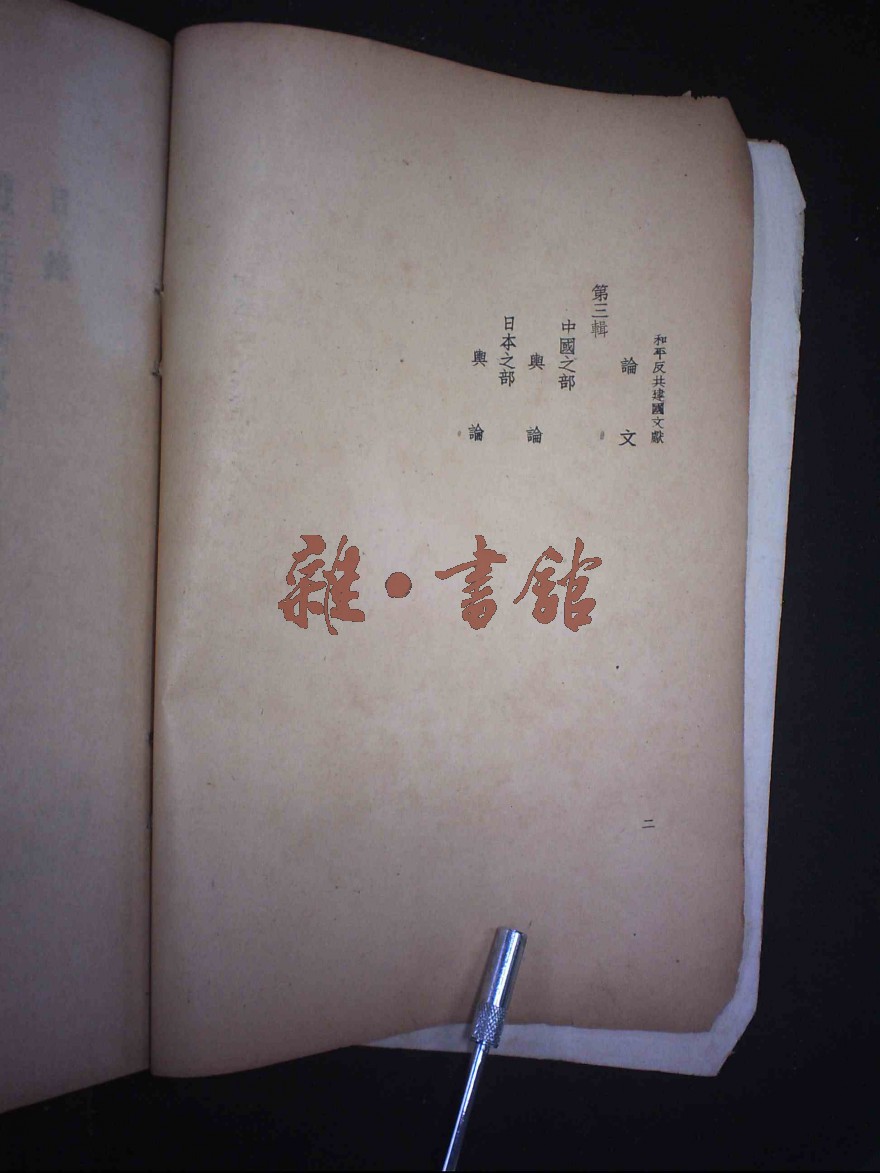 和平反共建國文獻
論文
第三輯
中國之部
輿論
日本之部
輿論
二
雜·書館